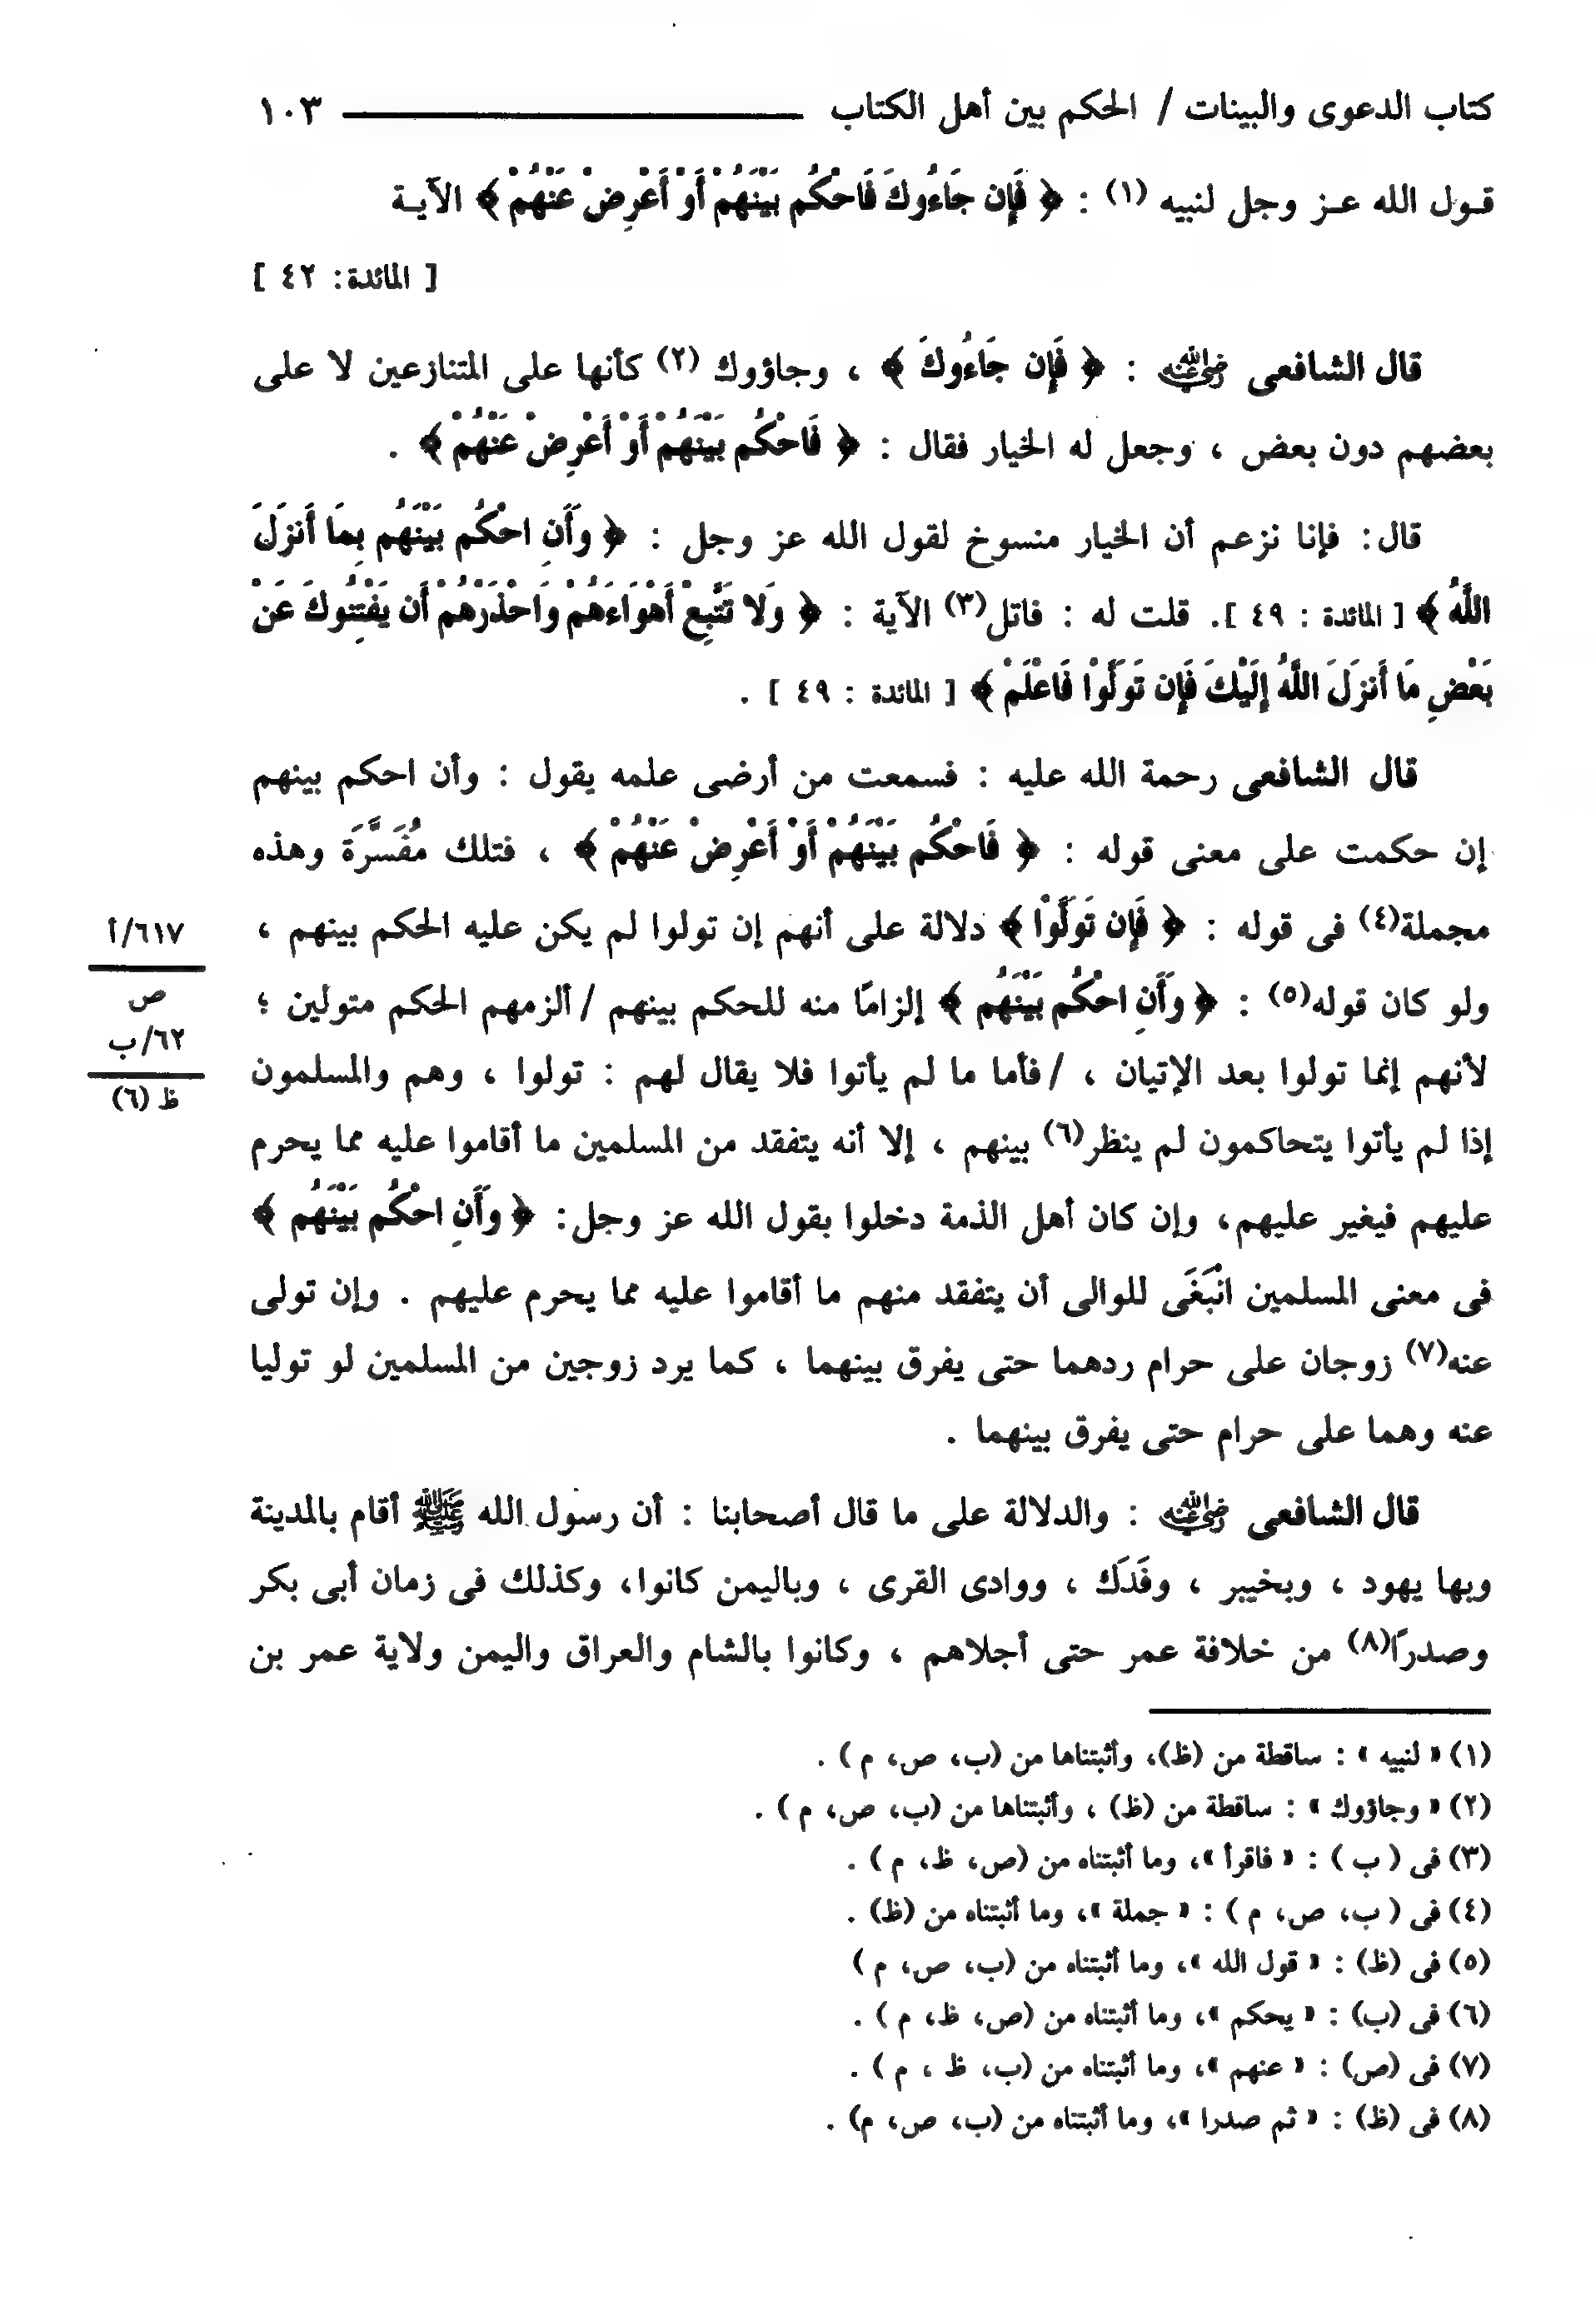 كتاب الدعوى والبينات / الحكم بين أهل الكتاب ١٠٣
قـول الله عـز وجل لنبيه (١) : ﴿ فَإِن جَاءُوكَ فَاحْكُم بَيْنَهُمْ أَوْ أَعْرِضْ عَنْهُمْ ﴾ الآيـة
[ المائدة: ٤٢ ]
قال الشافعى رضي الله عنه : ﴿ فَإِن جَاءُوكَ ﴾ ، وجاؤوك (٢) كأنها على المتنازعين لا على
بعضهم دون بعض ، وجعل له الخيار فقال : ﴿ فَاحْكُم بَيْنَهُمْ أَوْ أَعْرِضْ عَنْهُمْ ﴾ .
قال: فإنا نزعم أن الخيار منسوخ لقول الله عز وجل : ﴿ وَأَنِ احْكُم بَيْنَهُم بِمَا أَنزَلَ
اللَّهُ ﴾ [ المائدة : ٤٩ ]. قلت له : فاتل(٣) الآية : ﴿ وَلا تَتَّبِعْ أَهْوَاءَهُمْ وَاحْذَرْهُمْ أَن يَفْتِنُوكَ عَنْ
بَعْضِ مَا أَنزَلَ اللَّهُ إِلَيْكَ فَإِن تَوَلَّوْا فَاعْلَمْ ﴾ [ المائدة : ٤٩ ] .
قال الشافعى رحمة الله عليه : فسمعت من أرضى علمه يقول : وأن احكم بينهم
إن حكمت على معنى قوله : ﴿ فَاحْكُم بَيْنَهُمْ أَوْ أَعْرِضْ عَنْهُمْ ﴾ ، فتلك مُفَسَّرَة وهذه
مجملة(٤) فى قوله : ﴿ فَإِن تَوَلَّوْا ﴾ دلالة على أنهم إن تولوا لم يكن عليه الحكم بينهم ،
ولو كان قوله(٥) : ﴿ وَأَنِ احْكُم بَيْنَهُم ﴾ إلزامًا منه للحكم بينهم / ألزمهم الحكم متولين ؛
لأنهم إنما تولوا بعد الإتيان ، / فأما ما لم يأتوا فلا يقال لهم : تولوا ، وهم والمسلمون
إذا لم يأتوا يتحاكمون لم ينظر(٦) بينهم ، إلا أنه يتفقد من المسلمين ما أقاموا عليه مما يحرم
عليهم فيغير عليهم، وإن كان أهل الذمة دخلوا بقول الله عز وجل: ﴿ وَأَنِ احْكُم بَيْنَهُم ﴾
فى معنى المسلمين انْبَغَى للوالى أن يتفقد منهم ما أقاموا عليه مما يحرم عليهم . وإن تولى
عنه(٧) زوجان على حرام ردهما حتى يفرق بينهما ، كما يرد زوجين من المسلمين لو توليا
عنه وهما على حرام حتى يفرق بينهما .
قال الشافعى رضي الله عنه : والدلالة على ما قال أصحابنا : أن رسول الله ﷺ أقام بالمدينة
وبها يهود ، وبخيبر ، وفَدَك ، ووادى القرى ، وباليمن كانوا، وكذلك فى زمان أبى بكر
وصدرًا(٨) من خلافة عمر حتى أجلاهم ، وكانوا بالشام والعراق واليمن ولاية عمر بن
٦١٧/أ
ص
٦٢/ب
ظ (٦)
(١) « لنبيه » : ساقطة من (ظ)، وأثبتناها من (ب، ص، م ) .
(٢) « وجاؤوك » : ساقطة من (ظ) ، وأثبتناها من (ب، ص، م ) .
(٣) فى ( ب ) : « فاقرأ »، وما أثبتناه من (ص، ظ، م ) .
(٤) فى ( ب، ص، م ) : « جملة »، وما أثبتناه من (ظ) .
(٥) فى (ظ) : « قول الله »، وما أثبتناه من (ب، ص، م )
(٦) فى (ب) : « يحكم »، وما أثبتناه من (ص، ظ، م ) .
(٧) فى (ص) : « عنهم »، وما أثبتناه من (ب، ظ ، م ) .
(٨) فى (ظ) : « ثم صدرا »، وما أثبتناه من (ب، ص، م) .